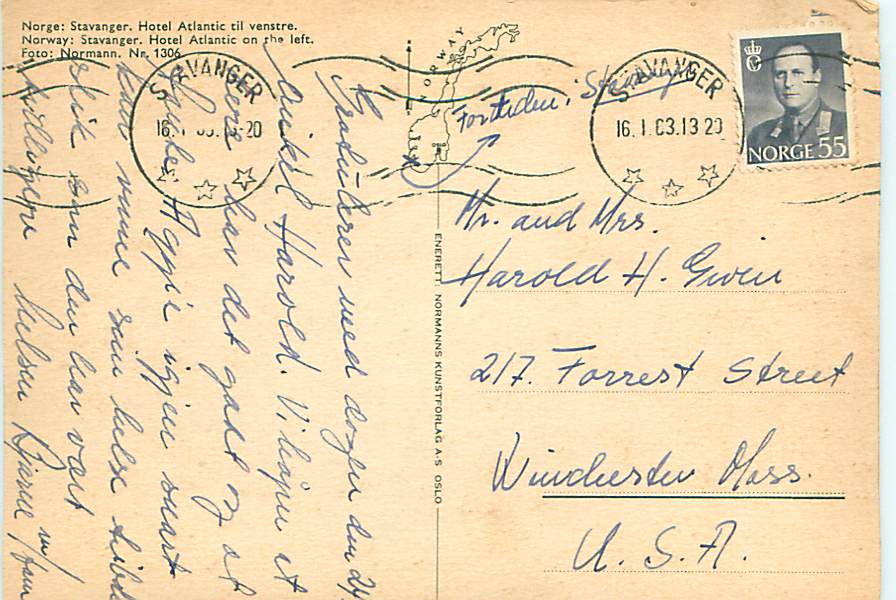 Norge: Stavanger. Hotel Atlantic til venstre.
Norway: Stavanger. Hotel Atlantic on the left.
Foto: Normann. Nr. 1306
NORWAY
STAVANGER
16. 1 63. 13-20
STAVANGER
16. 1. 63. 13 20
NORGE 55
Stavanger
Gratulerer med dagen den 24.
Onkel Harold. Vi håper at
dere har det godt og at
Aggie igjen snart
kan vinne sin helse tilbake
slik som den har vært
tidligere
hilsen Bjarne m/fam
ENERETT: NORMANNS KUNSTFORLAG A-S OSLO
Mr. and Mrs.
Harold H. Gwin
217. Forrest Street
Winchester Mass.
U. S. A.